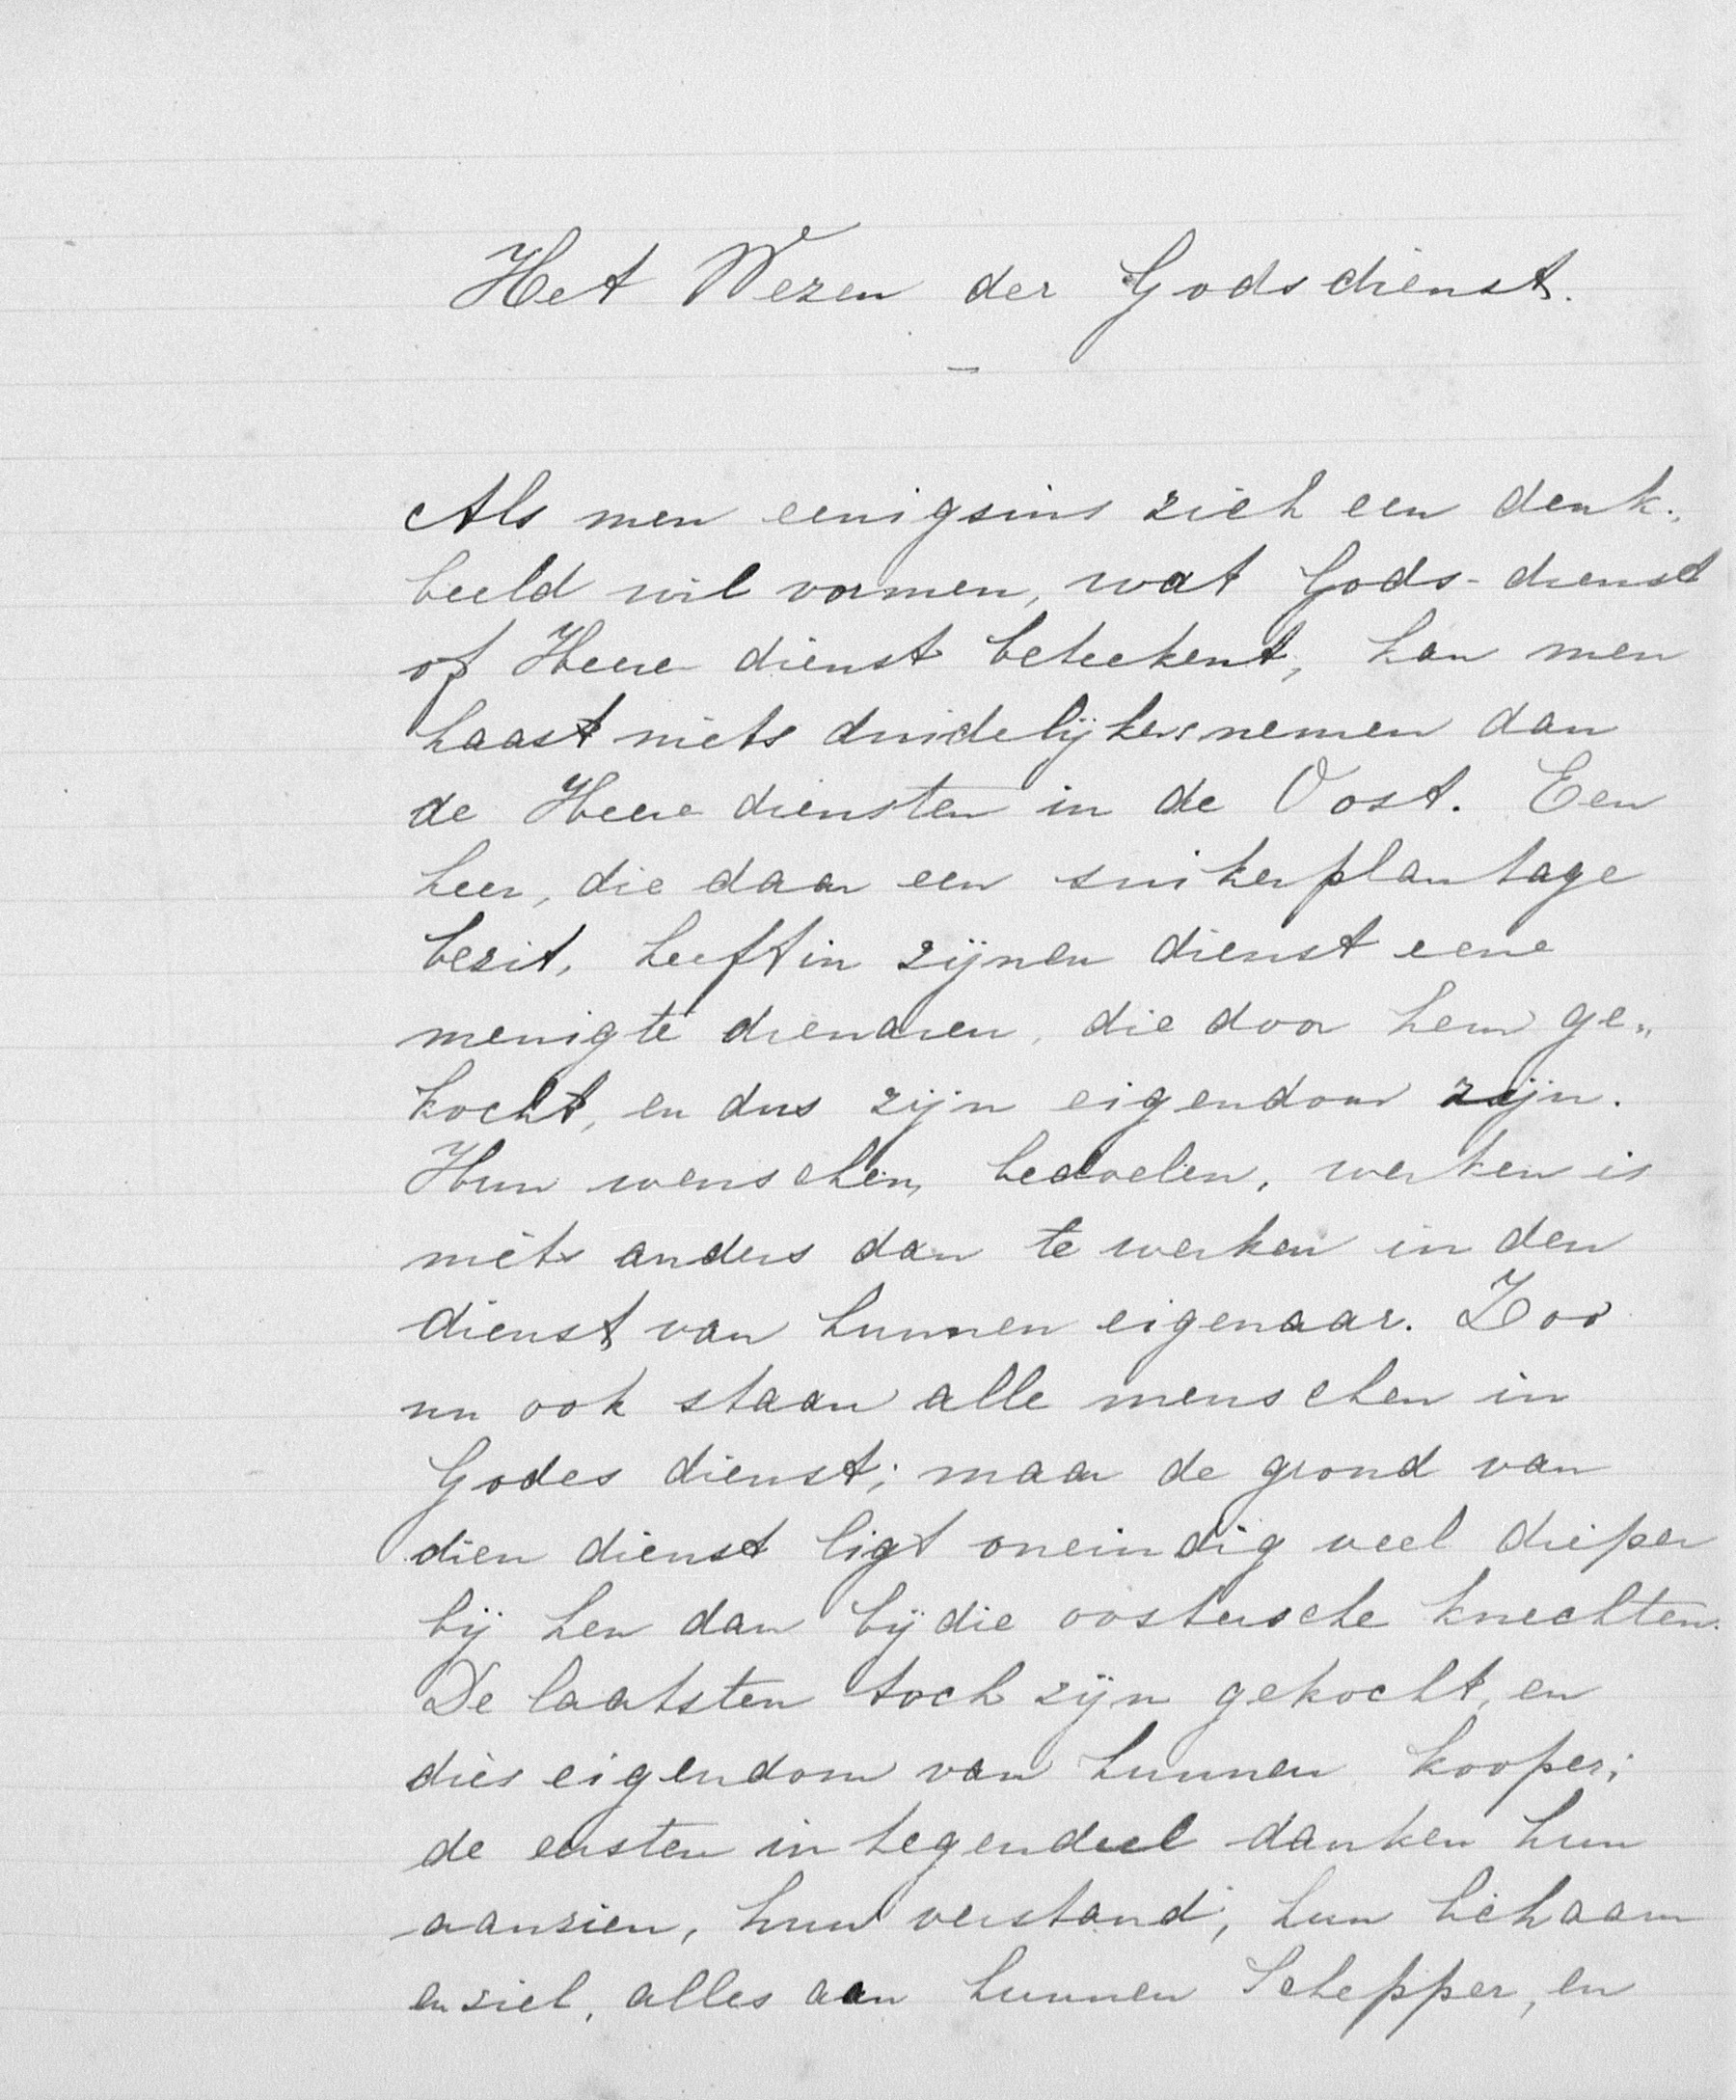 Het Wezen der Godsdienst.
Als men eenigsins zich een denk-
beeld wil vormen, wat Gods-dienst
of Heere dienst beteekent, kan men
haast niets duidelijkers nemen dan
de Heere diensten in de Oost. Een
heer, die daar een suikerplantage
bezit, heeft in zijnen dienst eene
menigte dienaren, die door hem ge„
kocht, en dus zijn eigendom zijn.
Hun wenschen, bedoelen, werken is
niets anders dan te werken in den
dienst van hunnen eigenaar. Zoo
nu ook staan alle menschen in
Godes dienst; maar de grond van
dien dienst ligt oneindig veel dieper
bij hen dan bij die oostersche knechten.
De laatsten toch zijn gekocht, en
dies eigendom van hunnen kooper;
de eersten in tegendeel danken hun
aanzien, hun verstand, hun lichaam
en ziel, alles aan hunnen Schepper, en